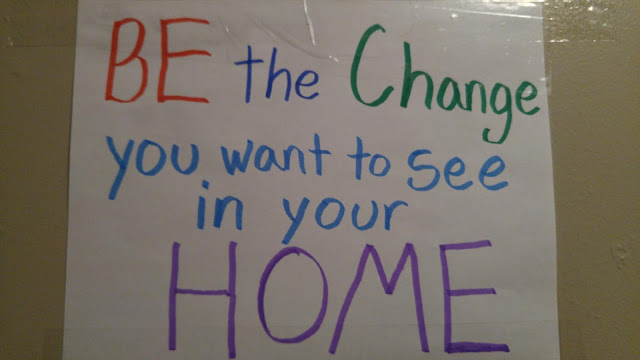 BE the Change
you want to see
in your
HOME